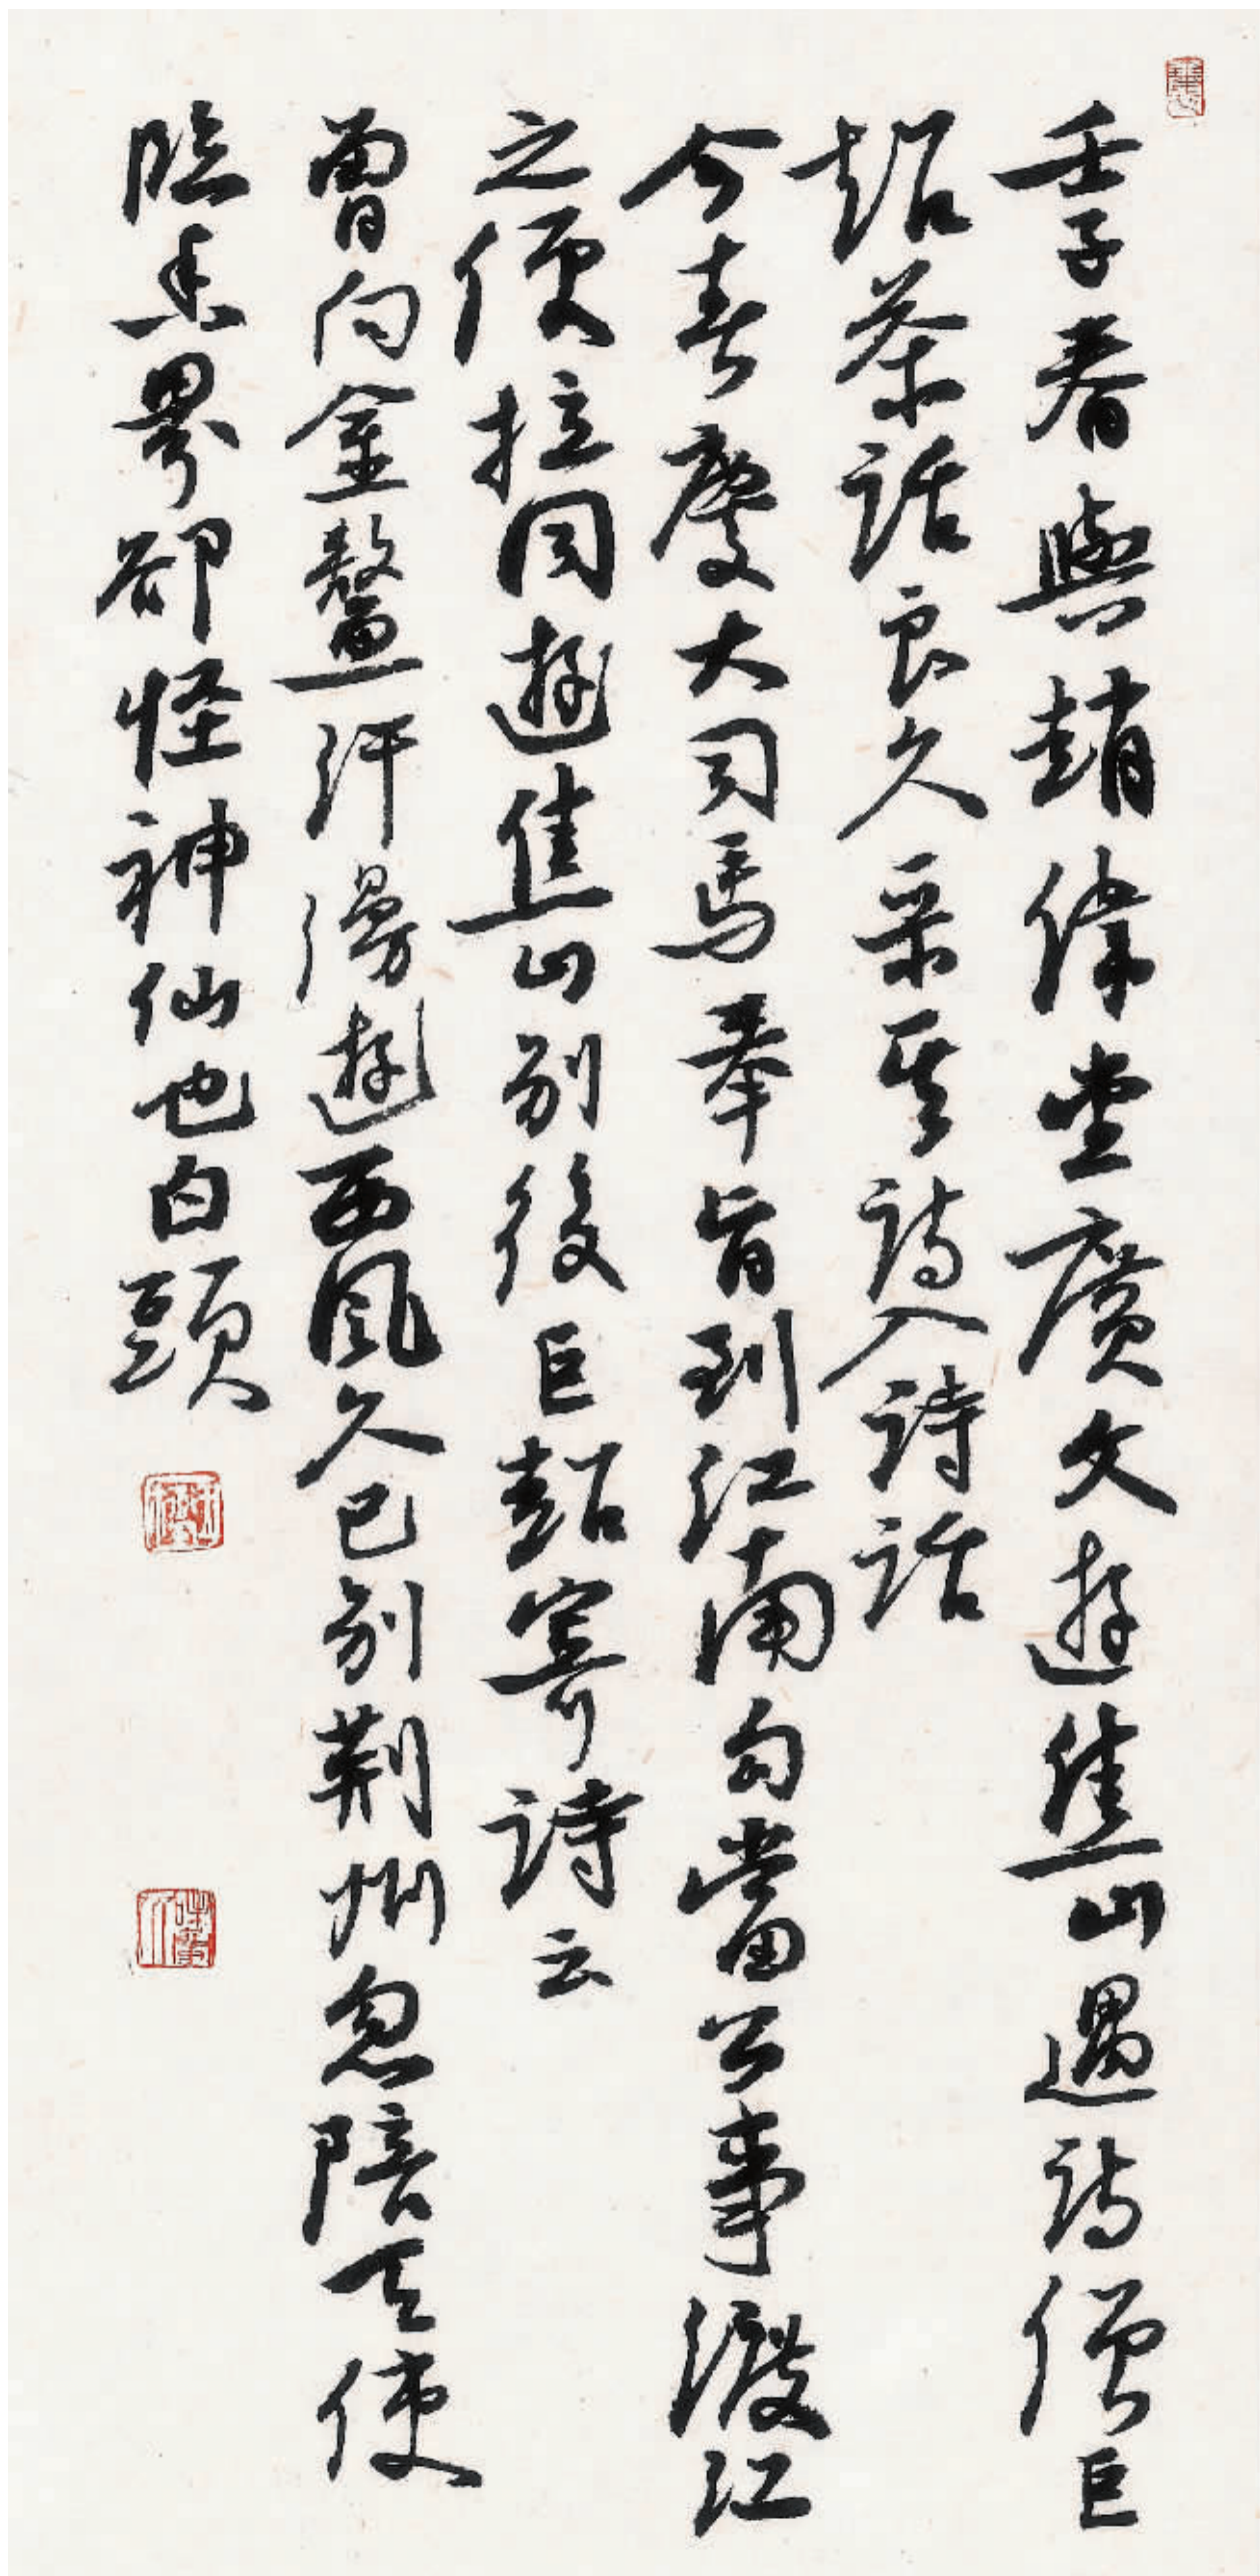 壬子春與趙偉堂廣文遊焦山遇詩僧巨
超茶話良久采其詩入詩話
今春慶大司馬奉旨到江南勾當公事渡江
之便拉同遊焦山別後巨超寄詩云
曾向金鰲汗漫遊西風久已別荊州忽陪天使
臨香界卻怪神仙也白頭